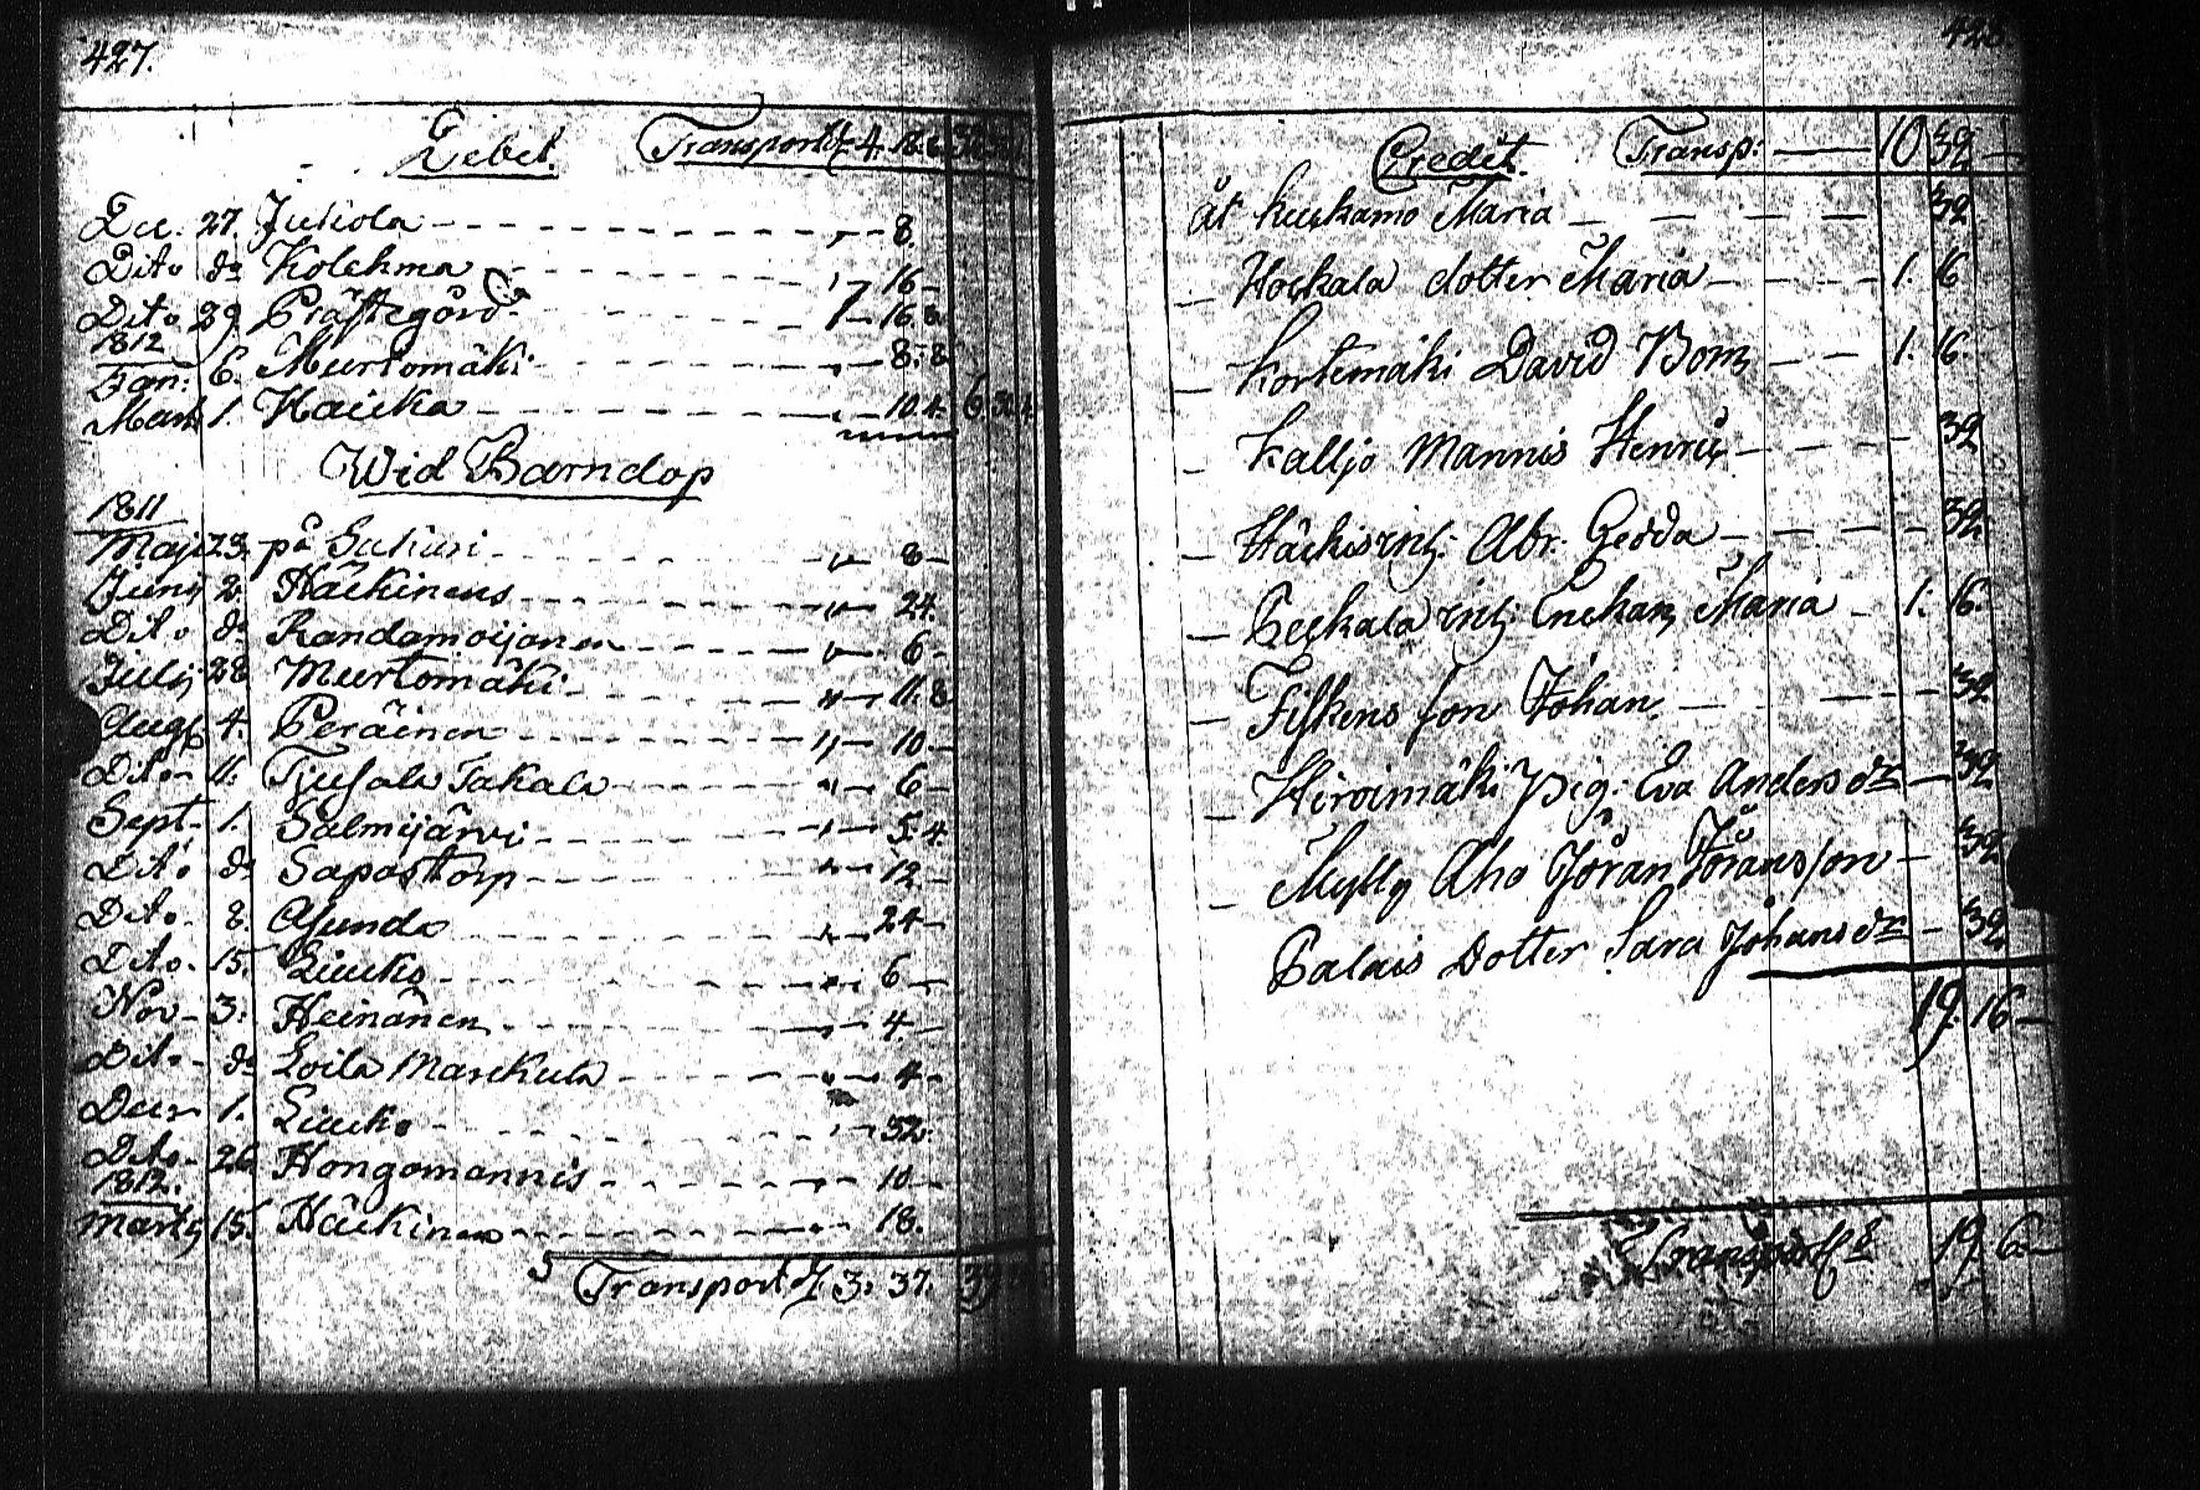 427.
Debet. Transport 4. 18. 6
Dec. 27. Jukola 8.
Dito do Kolehma 16
Dito 29 Prästegård 1 16. 8
1812
Jan: 6. Murtomäki 8. 8
Mart 1. Hauka 10. 4. 6
Wid Barndop
1811
Maji 23. på Sukari 8
Junij 2. Häckinens 24.
Dito do Randamoijonen 6
Julij 28 Murtomäki 11. 8
Aug 4. Peräinen 10
Dito 11. Takala 6
Sept. 1. Salmijärvi 5. 4.
Dito do Sapostorp 12
Dito 8. Asunda 24
Dito. 15. Liucko 6
Nov 3. Heinänen 4
Dito do Loila Marckula 4
Decr 1. Liucko 32.
Dito 26 Hongomannis 10
1812.
Martij 15. Häckinen 18.
Transport 3. 37. 39
428.
Credit. Transp: 10 32
åt Kuckamo Maria 32
Hockala dotter Maria 1. 16
Kortemäki David Bom 1. 16.
Kalljo Mannis Henric 32
Häckis Inh: Abr. Gedda 32
Peckala Inh: Enckan Maria 1. 16.
Fiskens son Johan 32
Hirvimäki Pig: Eva Anders dr 32
Mylly Aho Jöran Jöransson 32
Palais Dotter Sara Johans dr 32
19. 16
Transport 19 6